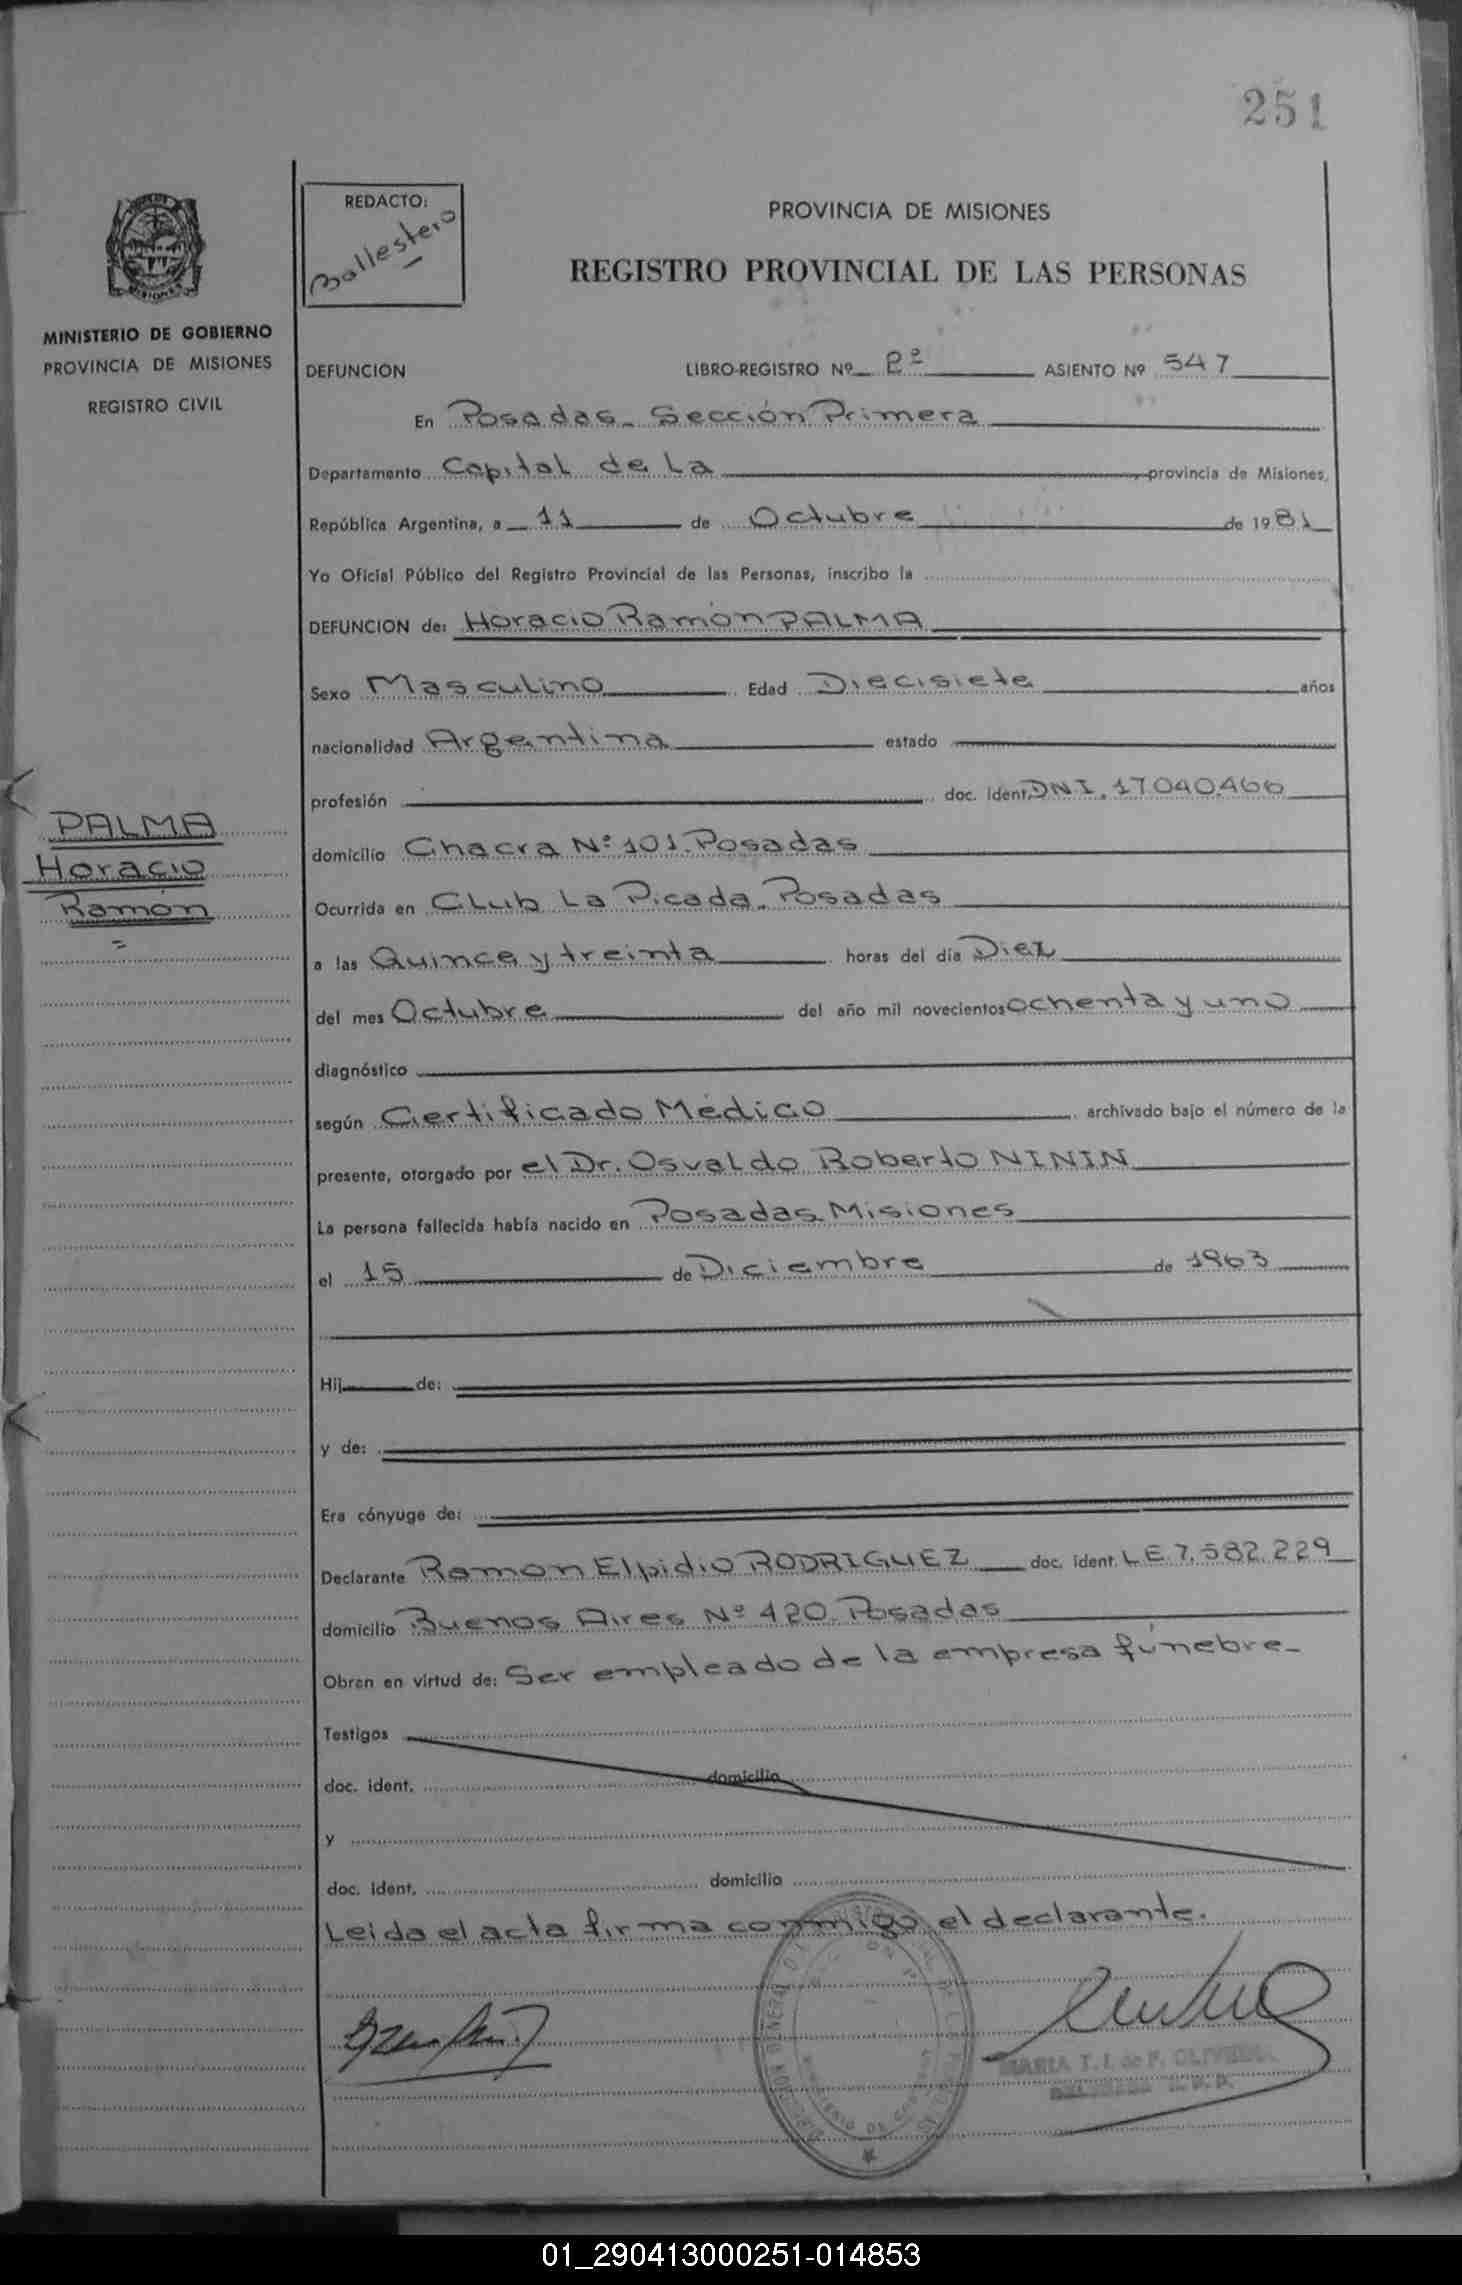 251
REDACTO:
Ballestero
PROVINCIA DE MISIONES
REGISTRO PROVINCIAL DE LAS PERSONAS
MINISTERIO DE GOBIERNO
PROVINCIA DE MISIONES
REGISTRO CIVIL
DEFUNCION LIBRO-REGISTRO Nº 2º ASIENTO Nº 547
En Posadas - Sección Primera
Departamento Capital de La provincia de Misiones,
República Argentina, a 11 de Octubre de 1981
Yo Oficial Público del Registro Provincial de las Personas, inscribo la
DEFUNCION de: Horacio Ramón PALMA
Sexo Masculino Edad Diecisiete años
nacionalidad Argentina estado
profesión doc. ident. DNI. 17040.466
PALMA
Horacio
Ramón
domicilio Chacra Nº 101. Posadas
Ocurrida en Club La Picada. Posadas
a las Quince y treinta horas del día Diez
del mes Octubre del año mil novecientos ochenta y uno
diagnóstico
según Certificado Médico archivado bajo el número de la
presente, otorgado por el Dr. Osvaldo Roberto NININ
La persona fallecida había nacido en Posadas Misiones
el 15 de Diciembre de 1963
Hij de:
y de:
Era cónyuge de:
Declarante Ramon Elpidio RODRIGUEZ doc. ident. L E 7.582.229
domicilio Buenos Aires Nº 420. Posadas
Obran en virtud de: Ser empleado de la empresa fúnebre-
Testigos
doc. ident. domicilio
y
doc. ident. domicilio
Leida el acta firma conmigo el declarante.
MARIA T. I. de F. OLIVEIRA
01_290413000251-014853